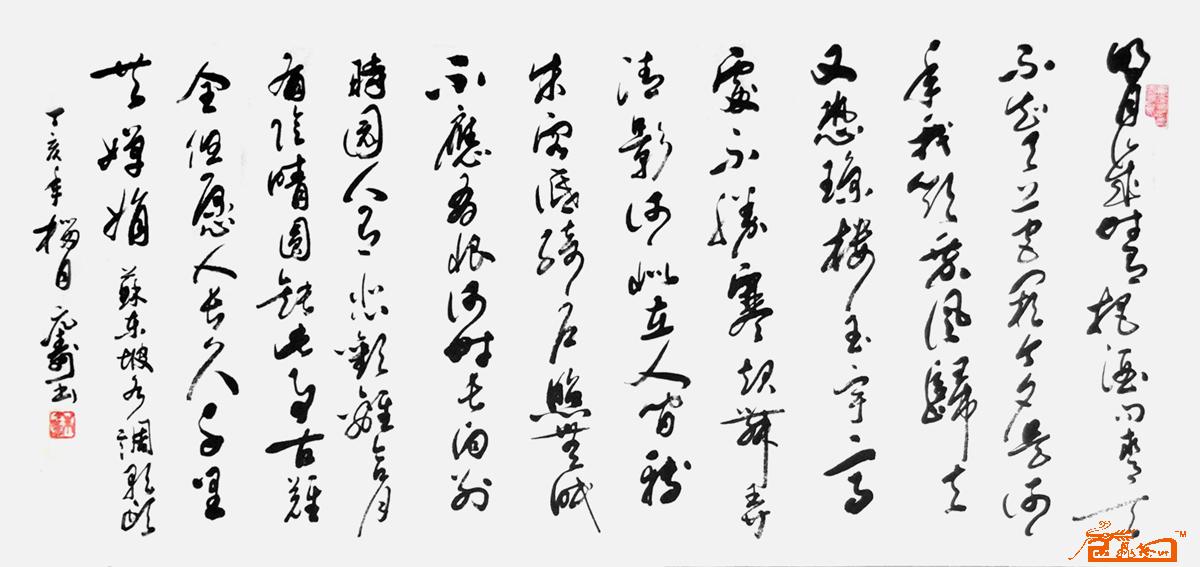 明月幾時有把酒问青天
不知天上宫阙今夕是何
年我欲乘風歸去
又恐瓊楼玉宇高
處不勝寒起舞弄
清影何似在人间转
朱低绮户照無眠
不應有恨何时长向别
時圆人有悲歡離合月
有陰晴圓缺此事古難
全但愿人长久千里
共嬋娟 蘇东坡水調歌頭
丁亥年榴月書